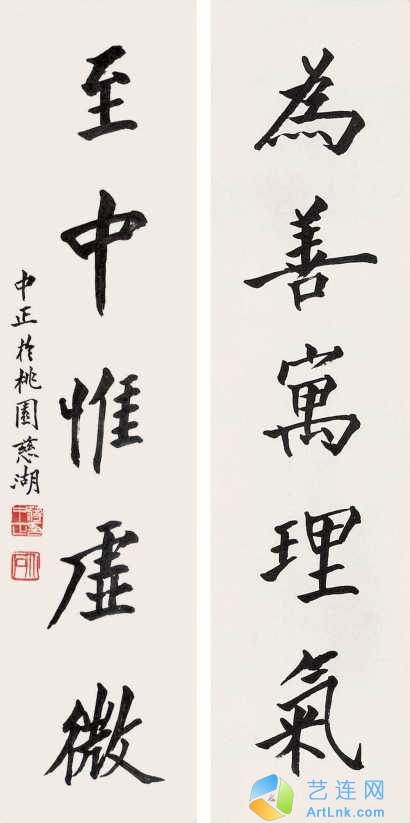 為善寓理氣
至中惟虛微
中正於桃園慈湖
艺连网
ArtLnk.com